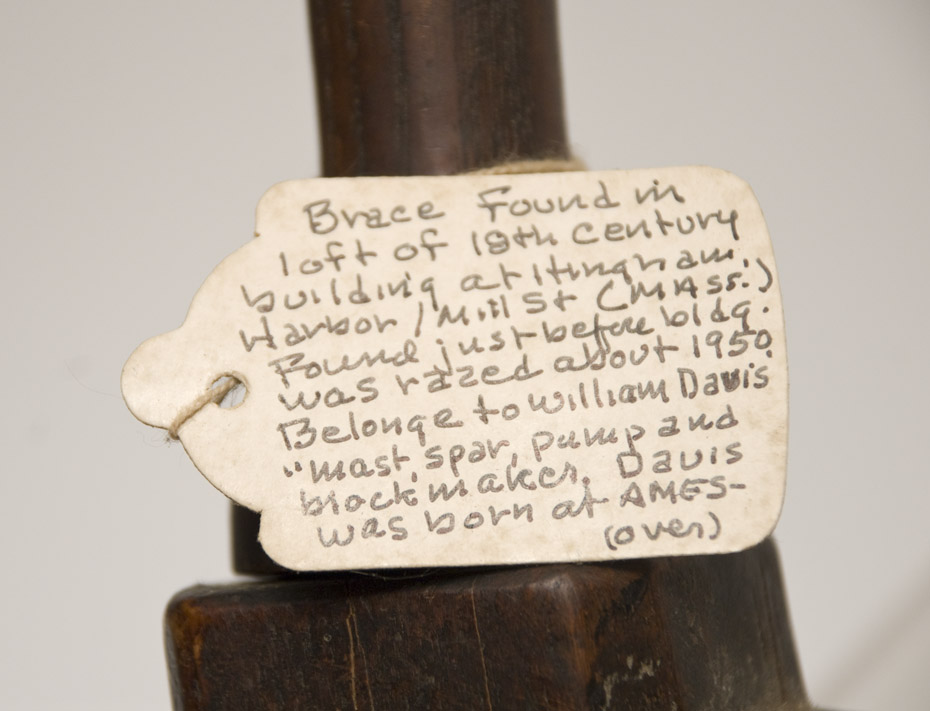 Brace Found in
loft of 18th century
building at Hingham
Harbor / Mill St (MASS.)
Found just before bldg.
was razed about 1950
Belonge to William Davis
"mast, spar, pump and
block maker. Davis
was born at AMES-
(over)